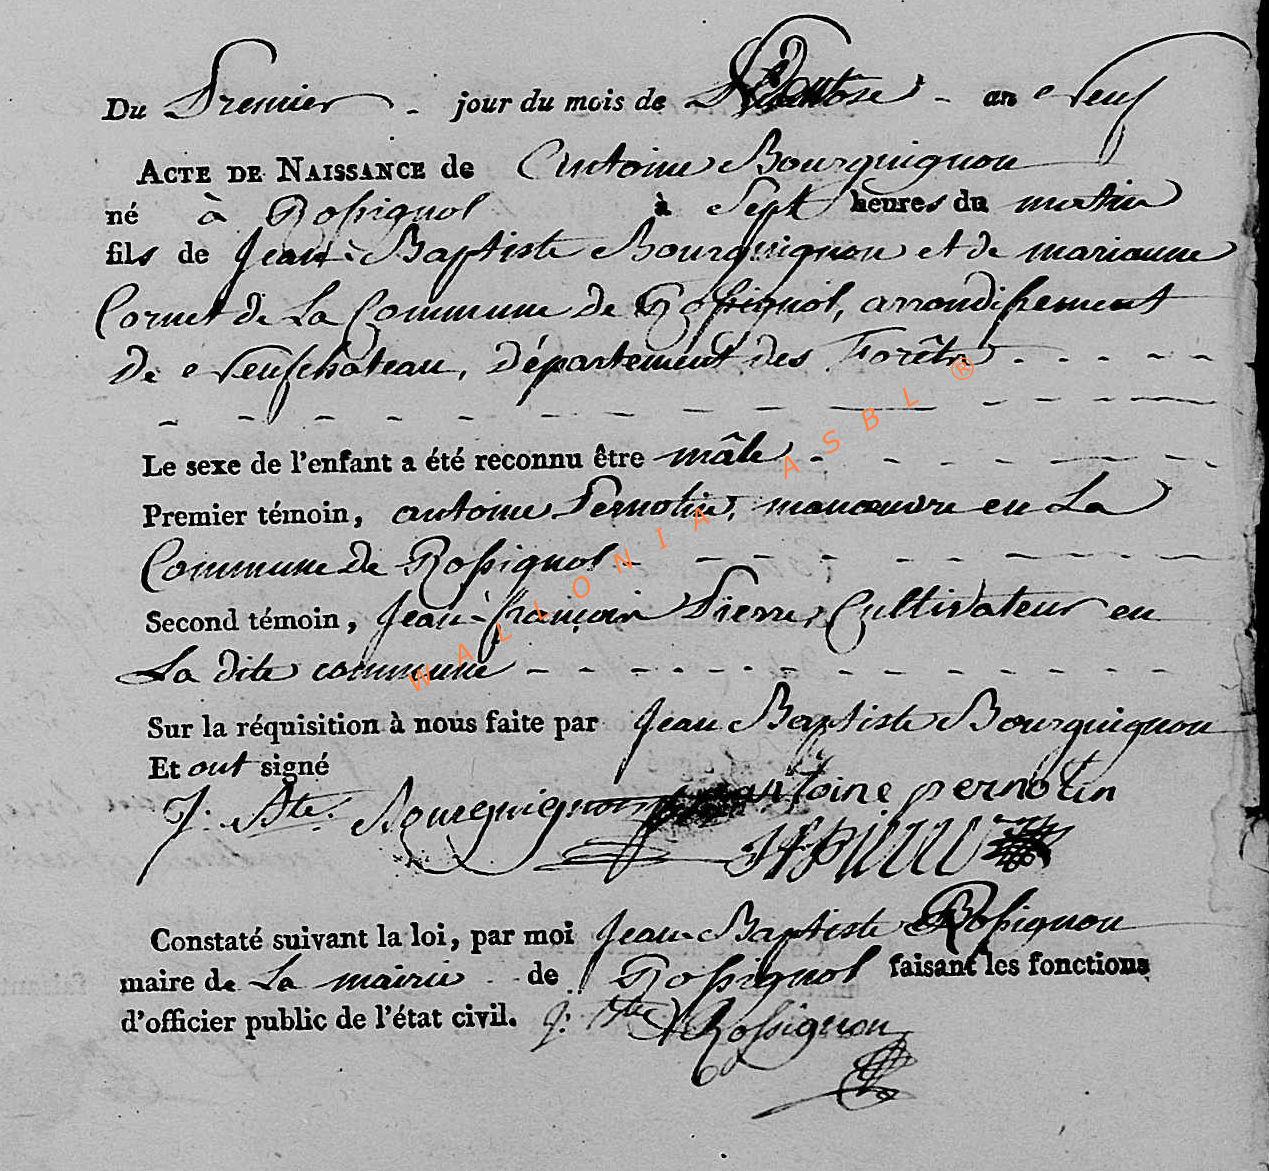 Du Premier - jour du mois de Ventose - an Neuf
ACTE DE NAISSANCE de Antoine Bourguignon
né à Rossignol à Sept heures du matin
fils de Jean-Baptiste Bourguignon et de marianne
Cornet de La Commune de Rossignol, arrondissement
De Neufchâteau, département des Forêts . - - - -
Le sexe de l'enfant a été reconnu être mâle - - - -
Premier témoin, antoine Pernotin, manœuvre en La
Commune de Rossignol - - - -
Second témoin, Jean-françois Pierre, Cultivateur en
La dite commune - - - -
Sur la réquisition à nous faite par Jean Baptiste Bourguignon
Et ont signé
J. Bte. Bourguignon antoine pernotin
Constaté suivant la loi, par moi Jean-Baptiste Rossignon
maire de La mairie de Rossignol faisant les fonctions
d'officier public de l'état civil. J. Bte Rossignon
WALLONIA ASBL ®